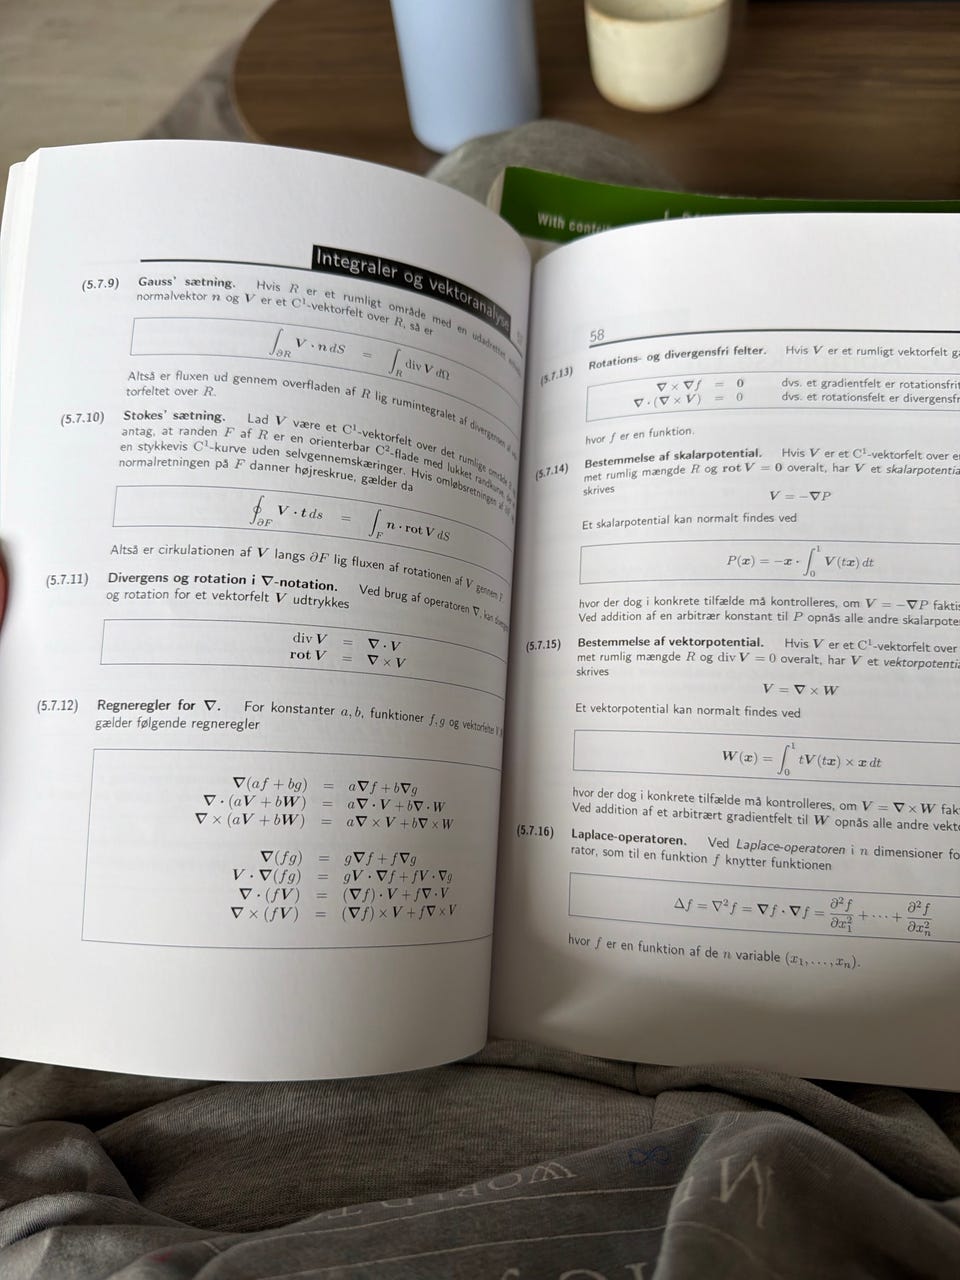 With
Integraler og vektoranalyse
(5.7.9) Gauss' sætning. Hvis R er et rumligt område med en udadrettet
normalvektor n og V er et C¹-vektorfelt over R, så er
∫_{∂R} V · n dS = ∫_R div V dΩ
Altså er fluxen ud gennem overfladen af R lig rumintegralet af divergensen af
torfeltet over R.
(5.7.10) Stokes' sætning. Lad V være et C¹-vektorfelt over det rumlige område R,
antag, at randen F af R er en orienterbar C²-flade med lukket randkurve,
en stykkevis C¹-kurve uden selvgennemskæringer. Hvis omløbsretningen af
normalretningen på F danner højreskrue, gælder da
∮_{∂F} V · t ds = ∫_F n · rot V dS
Altså er cirkulationen af V langs ∂F lig fluxen af rotationen af V gennem F
(5.7.11) Divergens og rotation i ∇-notation. Ved brug af operatoren ∇, kan
og rotation for et vektorfelt V udtrykkes
div V = ∇ · V
rot V = ∇ × V
(5.7.12) Regneregler for ∇. For konstanter a, b, funktioner f, g og vektorfelter V
gælder følgende regneregler
∇(af + bg) = a∇f + b∇g
∇ · (aV + bW) = a∇ · V + b∇ · W
∇ × (aV + bW) = a∇ × V + b∇ × W
∇(fg) = g∇f + f∇g
V · ∇(fg) = gV · ∇f + fV · ∇g
∇ · (fV) = (∇f) · V + f∇ · V
∇ × (fV) = (∇f) × V + f∇ × V
58
(5.7.13) Rotations- og divergensfri felter. Hvis V er et rumligt vektorfelt
∇ × ∇f = 0 dvs. et gradientfelt er rotationsfrit
∇ · (∇ × V) = 0 dvs. et rotationsfelt er divergensfr
hvor f er en funktion.
(5.7.14) Bestemmelse af skalarpotential. Hvis V er et C¹-vektorfelt over
met rumlig mængde R og rot V = 0 overalt, har V et skalarpotentia
skrives
V = −∇P
Et skalarpotential kan normalt findes ved
P(x) = −x · ∫₀¹ V(tx) dt
hvor der dog i konkrete tilfælde må kontrolleres, om V = −∇P fakti
Ved addition af en arbitrær konstant til P opnås alle andre skalarpote
(5.7.15) Bestemmelse af vektorpotential. Hvis V er et C¹-vektorfelt over
met rumlig mængde R og div V = 0 overalt, har V et vektorpotentia
skrives
V = ∇ × W
Et vektorpotential kan normalt findes ved
W(x) = ∫₀¹ tV(tx) × x dt
hvor der dog i konkrete tilfælde må kontrolleres, om V = ∇ × W fak
Ved addition af et arbitrært gradientfelt til W opnås alle andre vekt
(5.7.16) Laplace-operatoren. Ved Laplace-operatoren i n dimensioner fo
rator, som til en funktion f knytter funktionen
Δf = ∇²f = ∇f · ∇f = ∂²f/∂x₁² + ··· + ∂²f/∂xₙ²
hvor f er en funktion af de n variable (x₁, . . . , xₙ).